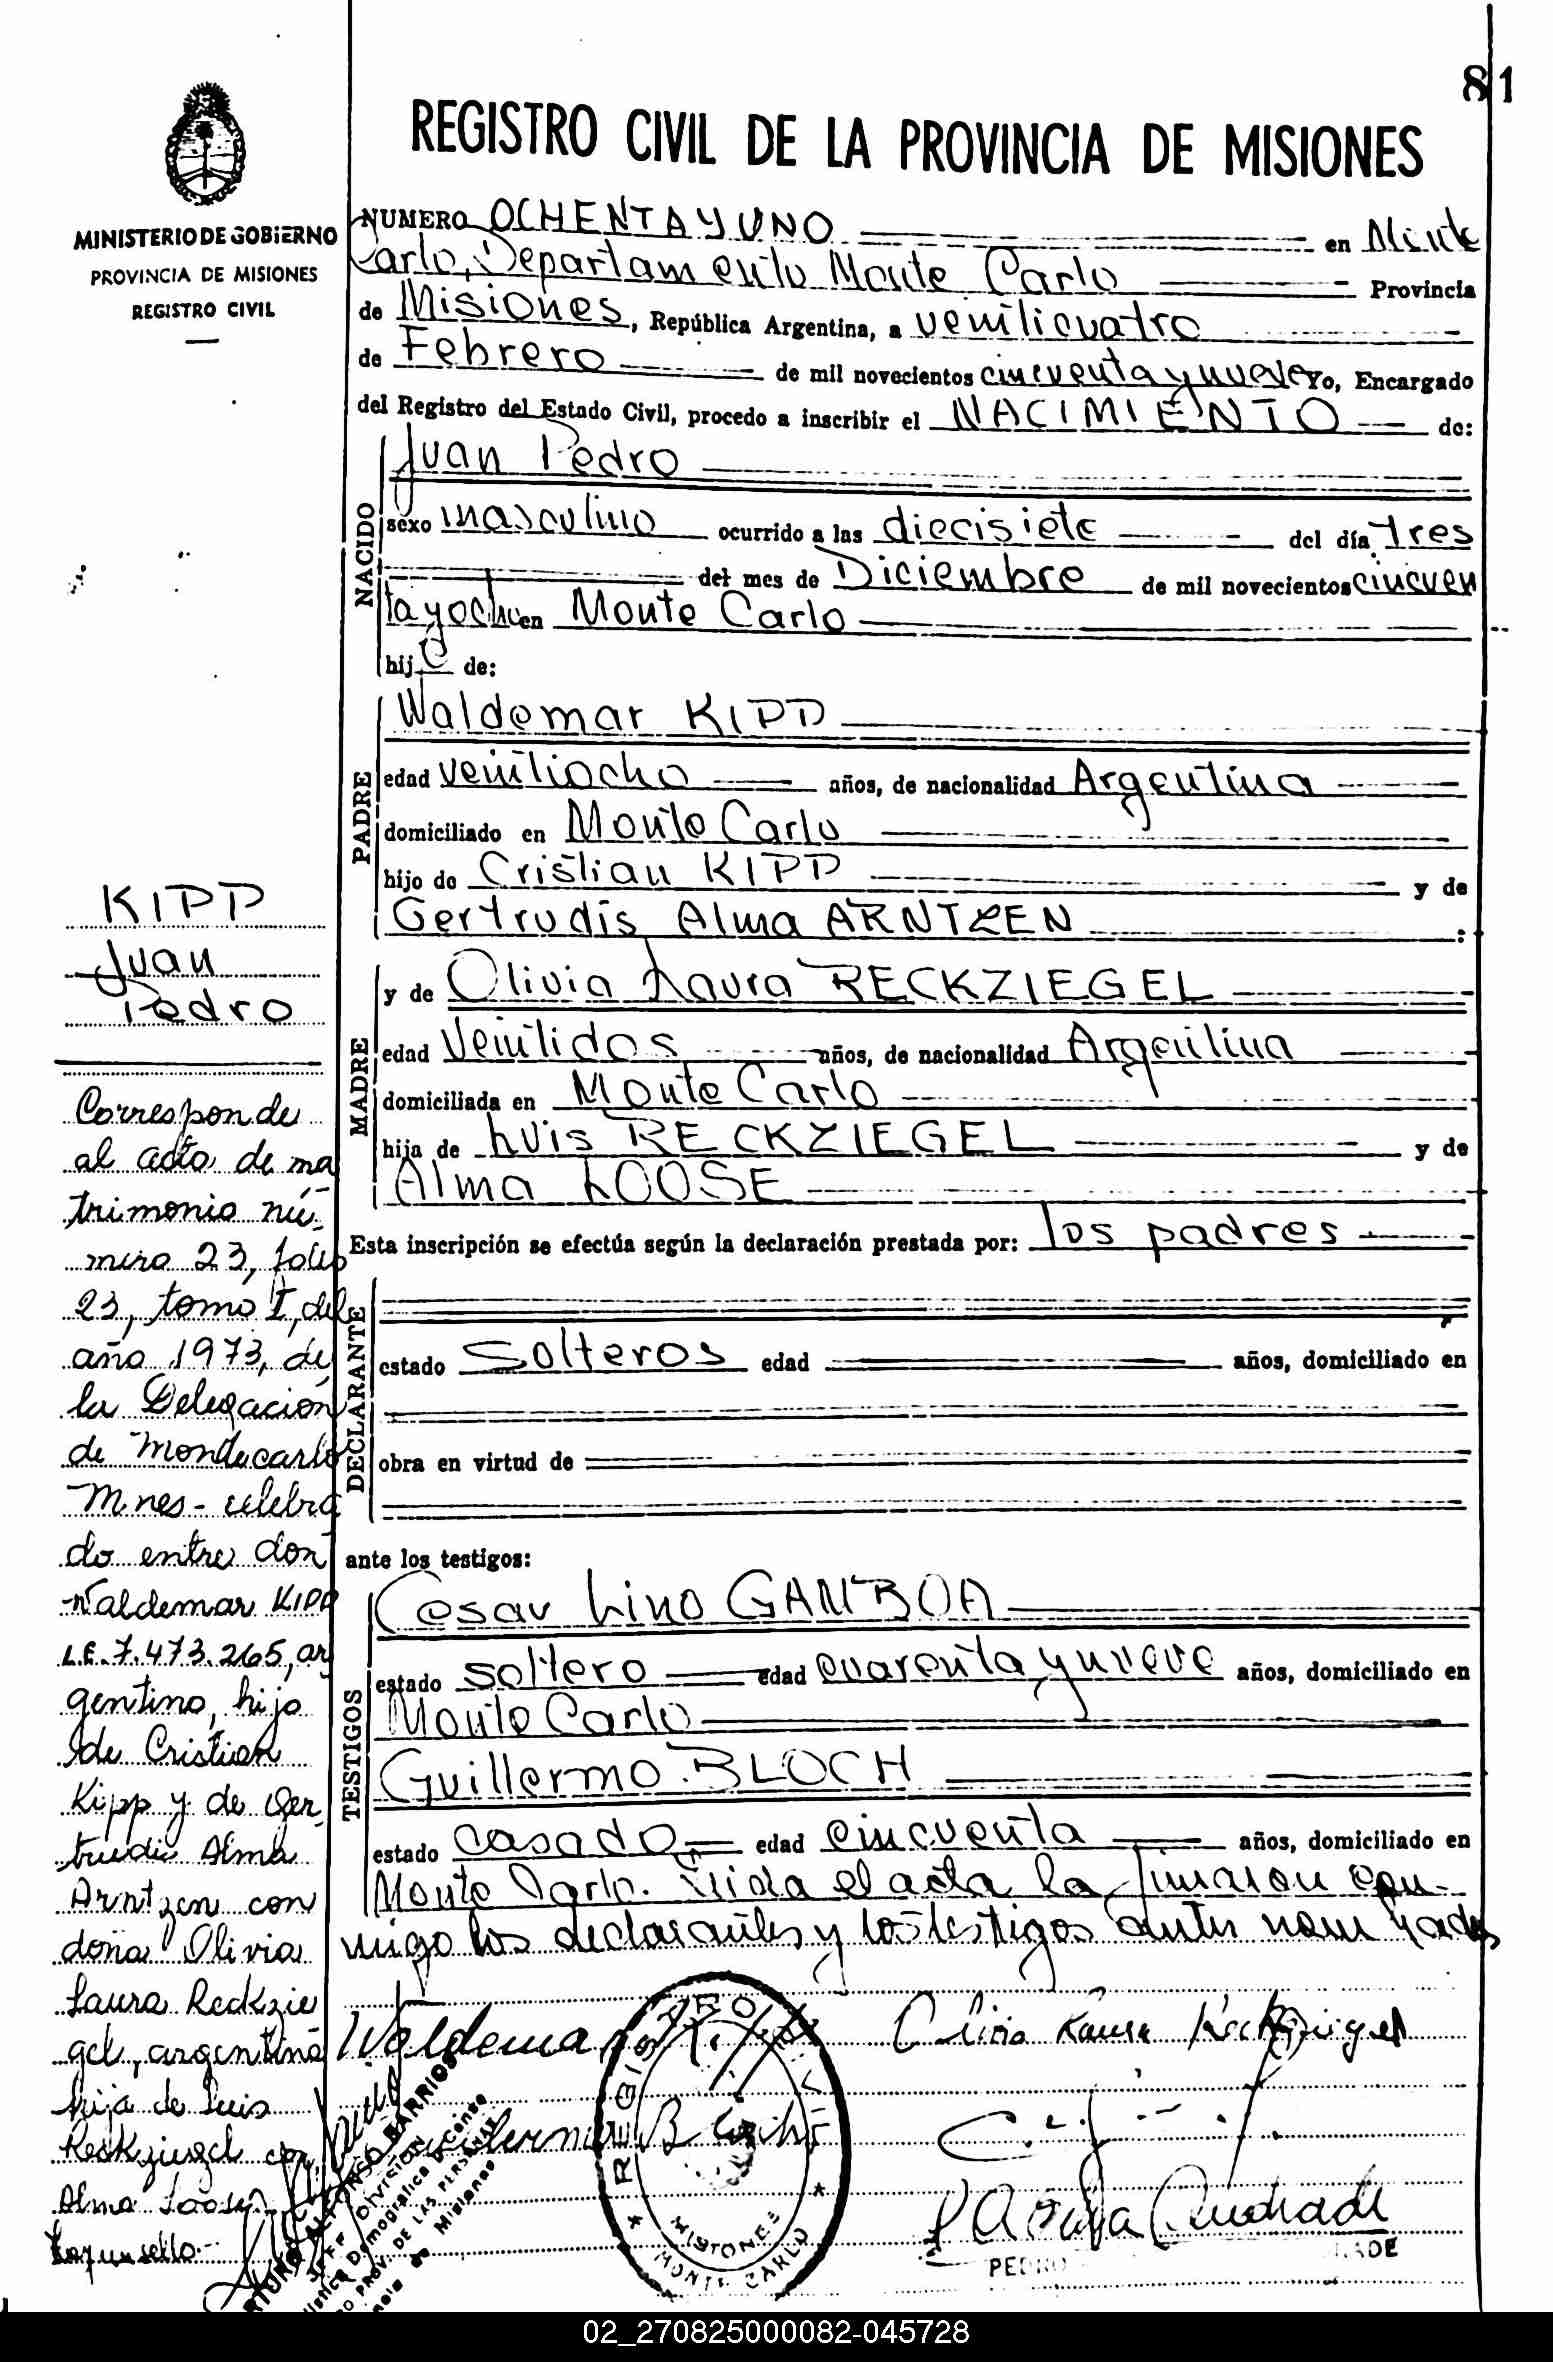 81
REGISTRO CIVIL DE LA PROVINCIA DE MISIONES
MINISTERIO DE GOBIERNO
PROVINCIA DE MISIONES
REGISTRO CIVIL
NUMERO OCHENTA Y UNO en Monte
Carlo, Departamento Monte Carlo Provincia
de Misiones, República Argentina, a veinticuatro
de Febrero de mil novecientos cincuenta y nueve Yo, Encargado
del Registro del Estado Civil, procedo a inscribir el NACIMIENTO de:
NACIDO
Juan Pedro
sexo masculino ocurrido a las diecisiete del día tres
del mes de Diciembre de mil novecientos cincuen
ta y ocho en Monte Carlo
hijo de:
PADRE
Waldemar KIPP
edad veintiocho años, de nacionalidad Argentina
domiciliado en Monte Carlo
hijo de Cristian KIPP y de
Gertrudis Alma ARNTZEN :
MADRE
y de Olivia Laura RECKZIEGEL
edad Veintidos años, de nacionalidad Argentina
domiciliada en Monte Carlo
hija de Luis RECKZIEGEL y de
Alma LOOSE
Esta inscripción se efectúa según la declaración prestada por: los padres
DECLARANTE
estado Solteros edad años, domiciliado en
obra en virtud de
ante los testigos:
TESTIGOS
Cesar Lino GAMBOA
estado soltero edad cuarenta y nueve años, domiciliado en
Monte Carlo
Guillermo BLOCH
estado casado edad cincuenta años, domiciliado en
Monte Carlo. Leida el acta la firmaron con-
migo los declarantes y los testigos antes nombrados
KIPP
Juan
Pedro
Corresponde
al acta de ma
trimonio nú-
mero 23, folio
23, tomo I, del
año 1973, de
la Delegación
de Montecarlo
Mnes- celebra
do entre don
Waldemar KIPP
L.E. 7.473.265, ar
gentino, hijo
de Cristian
Kipp y de Ger-
trudis Alma
Arntzen con
doña Olivia
Laura Reckzie
gel, argentina
hija de Luis
Reckziegel con
Alma Loose
Waldemar Kipp
Olivia Laura Reckziegel
REGISTRO CIVIL
MISIONES
MONTE CARLO
ALFONSO BARRIOS
JEFE DIVISION
Demográfica
PROV. DE LAS PERSONAS
Misiones
Andrade
PEDRO
02_270825000082-045728